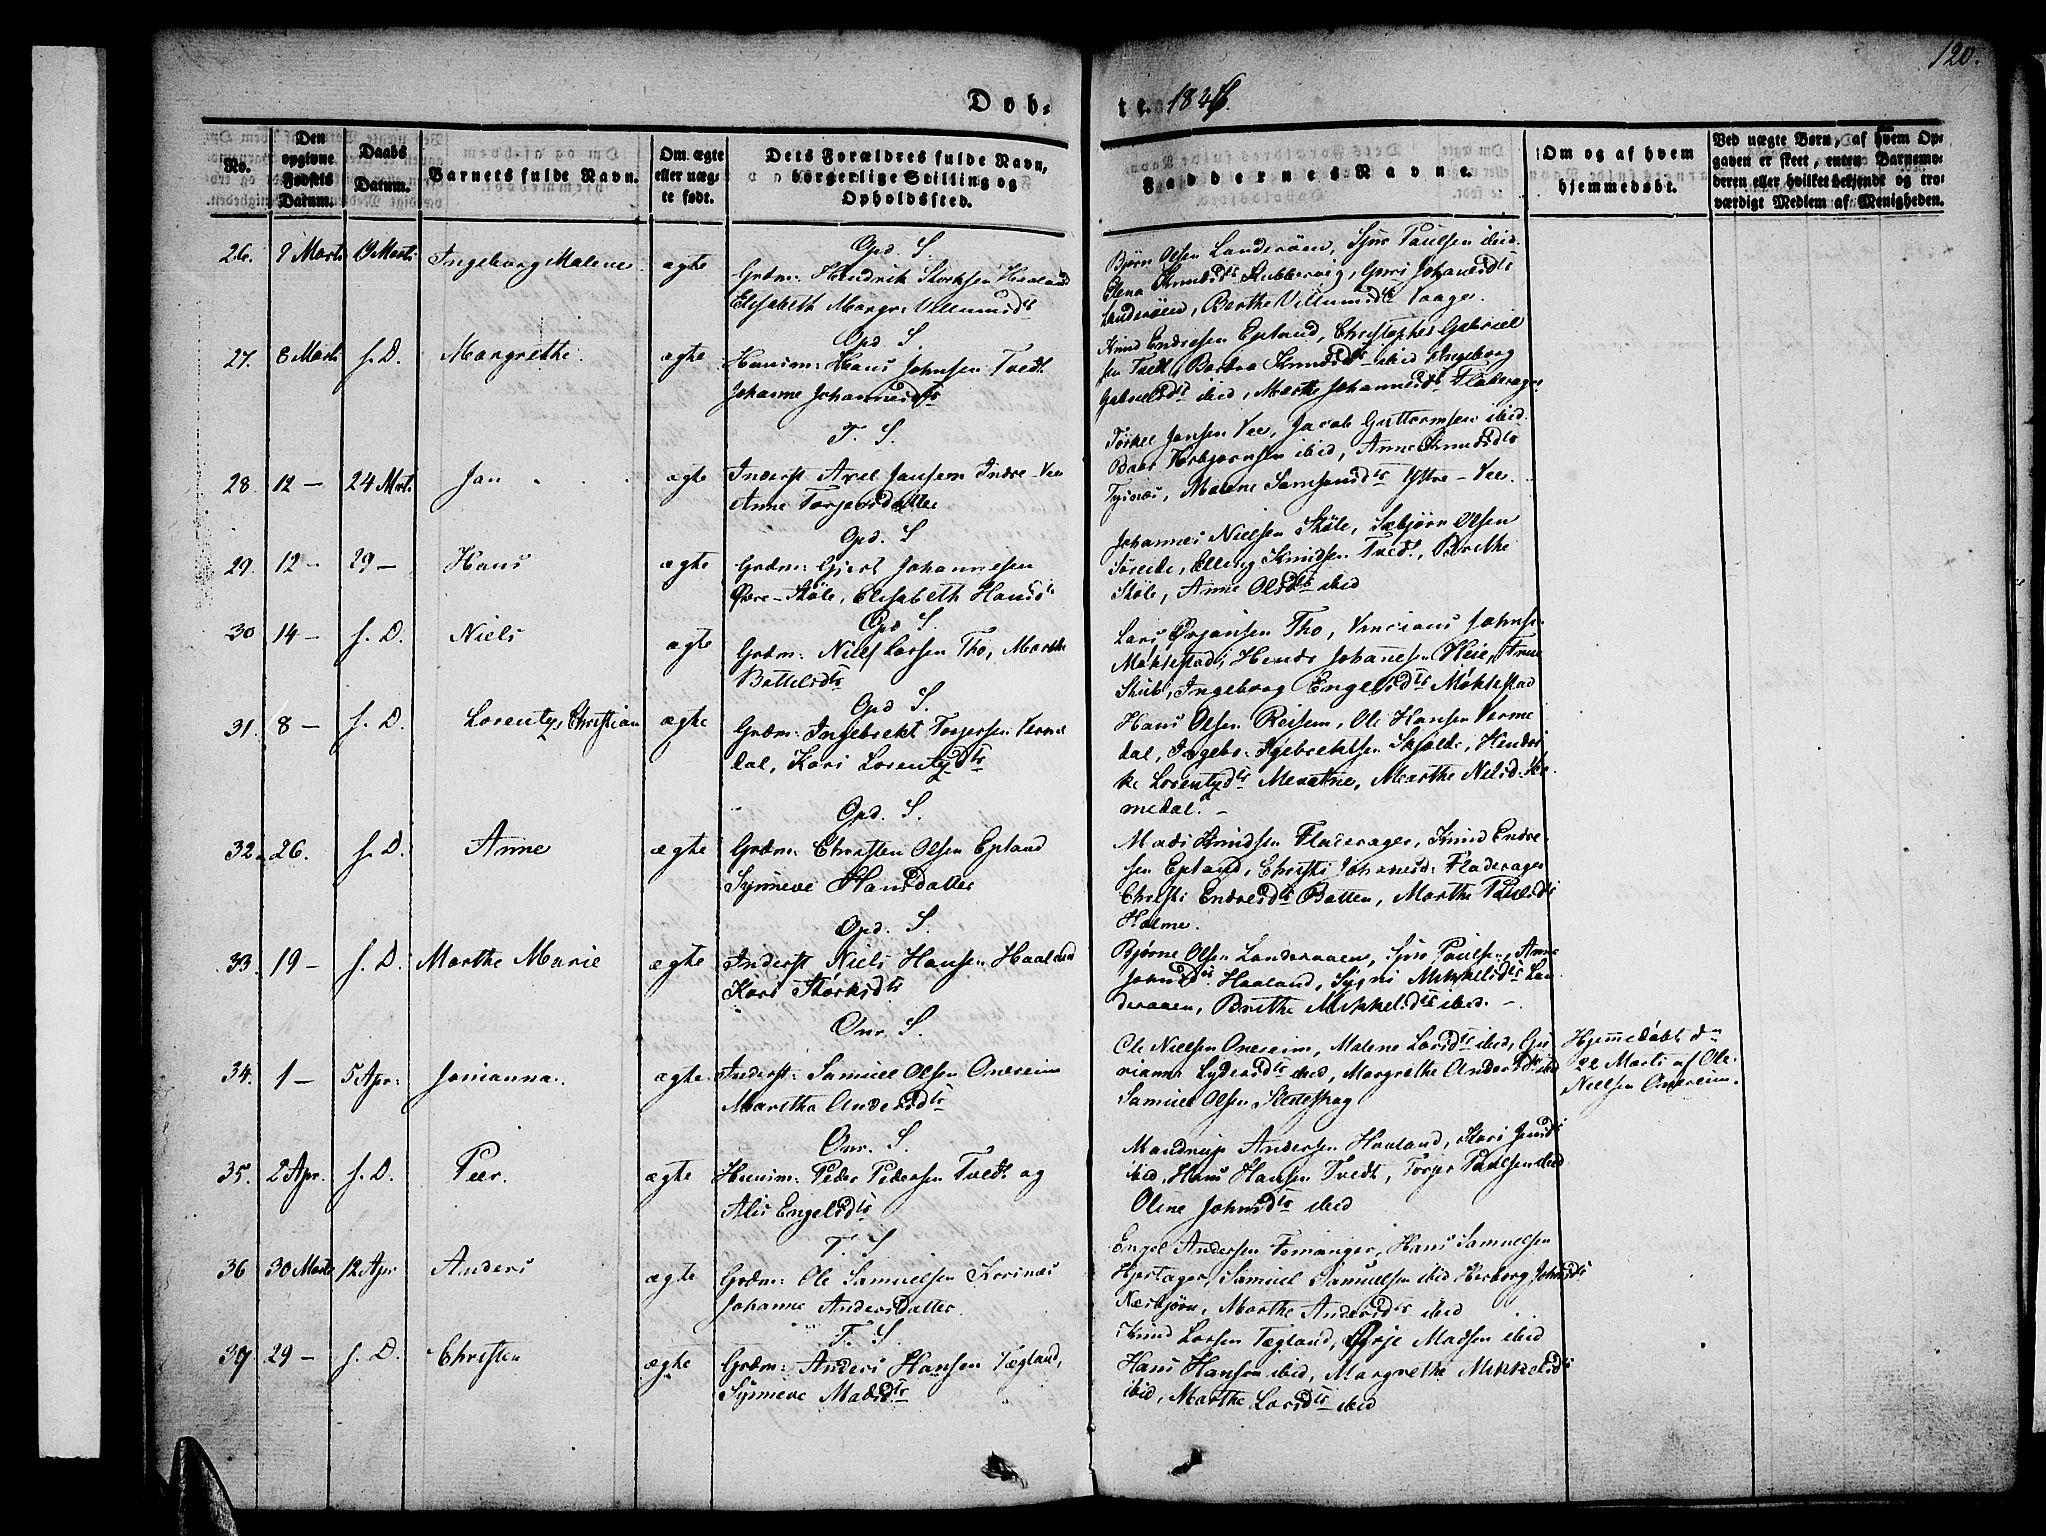 120.
Døb- te. 1846.
No.
Den opgivne Fødsels Datum.
Daabs Datum.
Barnets fulde Navn.
Om ægte eller uægte født.
Dets Forældres fulde Navn, borgerlige Stilling og Opholdssted.
Faddernes Navne.
Om og af hvem hjemmedøbt.
Ved uægte Børn, af hvem Opgaven er skeet, enten Barnemoderen eller hvilket bekjendt og troværdigt Medlem af Menigheden.
Opd. S.
26. 9 Marts Ingeborg Malene ægte
Grdm: Hendrik Storksen Haaland
Elisabeth Margr: Villumsdtr
Bjørn Olsen Landerøen, Sjur Paulsen ibid.
Elena Knudsdtr Skubbevig, Guri Johansdtr
Landerøen, Berthe Villumsdtr Vaage.
Opd. S.
27. 8 Marts s. D. Margrethe. ægte
Huusm: Hans Johnsen Tvedt
Johanne Johannesdtr
Knud Endresen Epland, Christopher Gabriel
sen Tvedt, Barbra Knudsdtr ibid Ingeborg
Gabrielsdtr ibid, Marthe Johannesdtr Fladerager
T. S.
28. 12 – 24 Mrts Jan ægte
Inderst Axel Jansen Indre-Vee
Anne Torjersdatter
Torkel Jansen Vee, Jacob Guttormsen ibid.
Baar Torbjørnsen ibid, Anne Knudsdtr
Tysnæs, Malene Samsonsdtr Ystre-Vee.
Opd. S
29. 12 – 29 – Hans ægte
Grdm: Giert Johannesen
Øvre-Skøle, Elisabeth Hansdtr
Johannes Nielsen Skøle, Sæbjørn Olsen
Søreide, Elling Knudsen Tvedt, Brethe
Skøle, Anne Olsdtr ibid
Opd S.
30 14 – s. D. Niels ægte
Grdm: Niels Larsen Tho, Marthe
Bottelsdtr
Lars Ørjansen Tho, Vincians Johns-
Møklestad, Johannesen Heie,
Skub, Ingeborg Engelsdtr Møklestad
Opd S.
31. 8 – s. D. Lorentz Christian ægte
Grdm: Ingebrekt Torjersen Verme
dal, Kari Lorentzdtr
Hans Olsen Reisem, Ole Hansen Verme
dal, Ingebr: Igebrektsen Skjolde, Hendri
ke Lorentzdtr Mevatne, Marthe Nilsd: Ve
medal. –
Opd. S.
32. 26. s. D. Anne ægte
Grdm: Christen Olsen Epland
Synneve Hansdatter
Mads Knudsen Fladerager, Knud Endre-
sen Epland, Christi Johannesd: Fladerager
Christi Endresdtr Batten, Marthe Paulsdtr
Holme.
Opd. S.
33. 19 – s. D. Marthe Marie ægte
Inderst Niels Hansen Haaland
Kari Storksdtr
Bjørne Olsen Landeraaen, Sjur Paulsen, Anne
Johnsdtr Haaland, Sygni Mikkelsdtr Lan
deraaen, Brithe Mikkelsdtr ibid. –
Onr. S.
34. 1 – 5 Apr: Johanna. ægte
Inderst: Samuel Olsen Onereim
Martha Andersdtr
Ole Nielsen Onereim, Malene Larsdtr ibid, Gu
rianne Lydersdtr ibid, Margrethe Andersdtr ibid
Samuel Olsen
Hjemmedøbt dn
22 Marts af Ole
Nielsen Onereim.
Onr. S.
35. 2 Apr. s. D. Peer. ægte
Huusm: Peder Pedersen Tvedt og
Alis Engelsdtr
Mandrup Andersen Haaland, Kari Jensdtr
ibid, Hans Hansen Tvedt, Torjer Paulsen ibid
Oline Johnsdtr ibid
T. S
36 30 Marts 12 Apr Anders ægte
Grdm: Ole Samuelsen Korsnæs
Johanne Andersdatter.
Engel Andersen Femanger, Hans Samuelsen
Hjertager, Samuel Samuelsen ibid Herborg Johnsdtr
Næsbjørn, Marthe Andersdtr ibid
T. S.
37 29 – s. D. Christen ægte
Grdm: Anders Hansen Tægland,
Synneve Madsdtr
Knud Larsen Tægland, Børje Madsen ibid
Hans Hansen ibid, Margrethe Mikkelsdtr
ibid, Marthe Larsdtr ibid